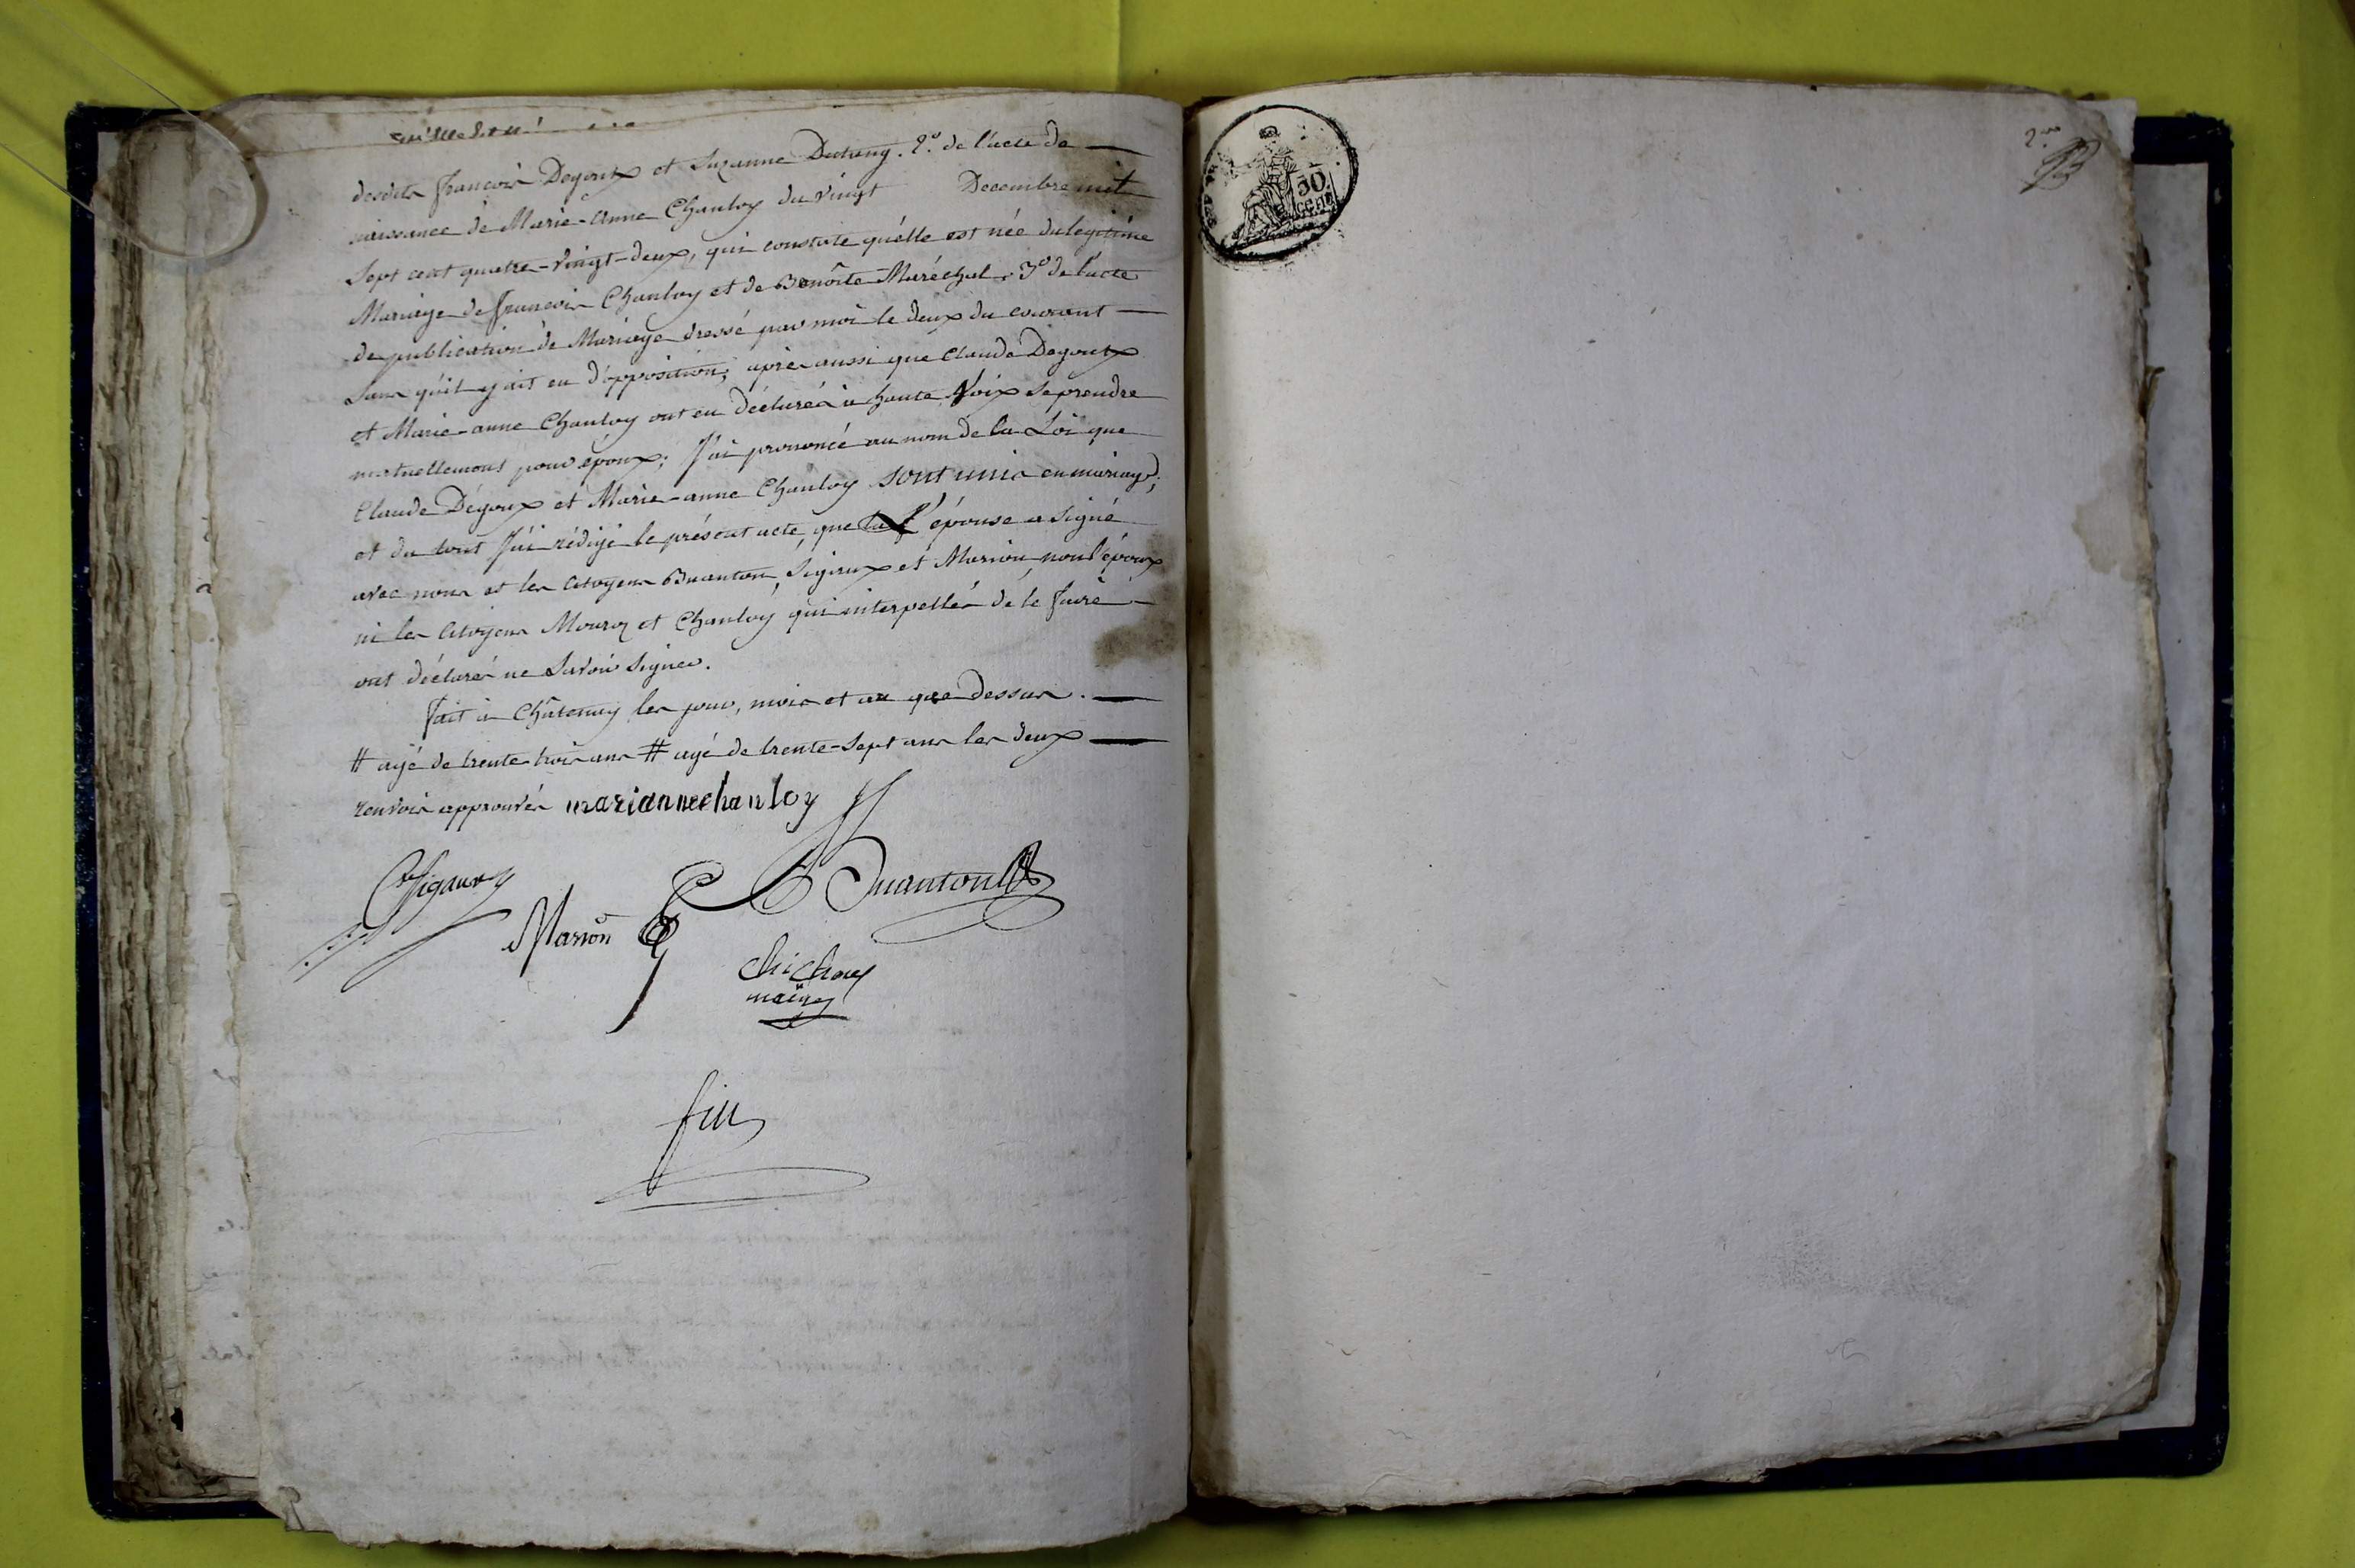 desdits françois Degoux et Suzanne Dutrey. 2.° de l'acte de
naissance de Marie-anne Chanloy du vingt Decembre mil
Sept cent quatre-vingt-deux, qui constate quélle est née du légitime
Mariage de françois Chanloy et de Benôite Maréchal. 3.° de l'acte
de publication de Mariage dressé par moi le deux du courant
sans qu'il y ait eu d'opposition; après aussi que Claude Degoux
et Marie-anne Chanloy ont eu déclarés à haute Voix se prendre
mutuellement pour époux; J'ai prononcé au nom de la Loi que
Claude Dégoux et Marie-anne Chanloy sont unis en mariage;
et du tout J'ai rédigé le présent acte, que l'épouse a signé
avec nous et les Citoyens Buanton, Sigaux et Marion, non l'époux
ni les Citoyens Mouroz et Chanloy, qui interpellés de le faire
ont déclarés ne Savoir signer.
fait à Châtenay les jour, mois et an que dessus.
# agé de trente trois ans # agé de trente-sept ans les deux
renvois approuvés mariannechanloy
Sigaux
Buanton
Marion
Chichoux
maire
fin
2.me
50
cent.